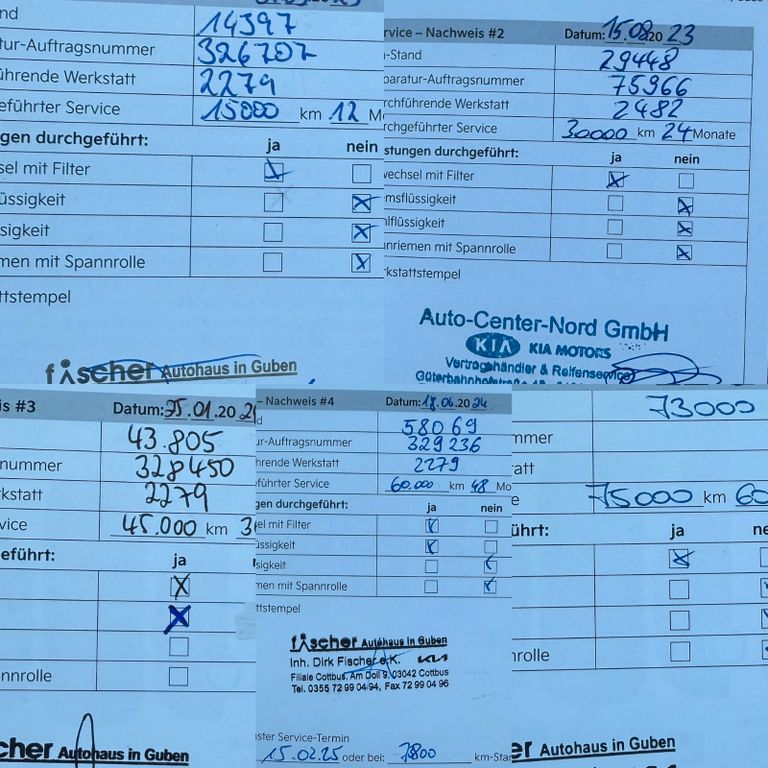 nd 14397
tur-Auftragsnummer 326707
ührende Werkstatt 2279
eführter Service 15000 km 12 M
gen durchgeführt: ja nein
sel mit Filter
üssigkeit
sigkeit
men mit Spannrolle
ttstempel
fischer Autohaus in Guben
rvice – Nachweis #2 Datum: 15.08.20 23
-Stand 29448
paratur-Auftragsnummer 75966
rchführende Werkstatt 2482
rchgeführter Service 30000 km 24 Monate
stungen durchgeführt: ja nein
wechsel mit Filter
msflüssigkeit
lflüssigkeit
nriemen mit Spannrolle
rkstattstempel
Auto-Center-Nord GmbH
KIA KIA MOTORS
Vertragshändler & Reifenservice
is #3 Datum: 25.01.20 24
43.805
nummer 328450
rkstatt 2279
vice 45.000 km 3
eführt: ja
nnrolle
cher Autohaus in Guben
– Nachweis #4 Datum: 18.06.20 24
d 58069
ur-Auftragsnummer 329236
hrende Werkstatt 2279
führter Service 60.000 km 48 Mo
gen durchgeführt: ja nein
el mit Filter
üssigkeit
sigkeit
men mit Spannrolle
ttstempel
fischer Autohaus in Guben
Inh. Dirk Fischer e.K. KIA
Filiale Cottbus, Am Doll 9, 03042 Cottbus
Tel. 0355 72 99 04 94, Fax 72 99 04 96
ster Service-Termin
15.02.25 oder bei: 7800 km-Sta
73000
mmer
att
e 75000 km 60
ührt: ja ne
rolle
er Autohaus in Guben